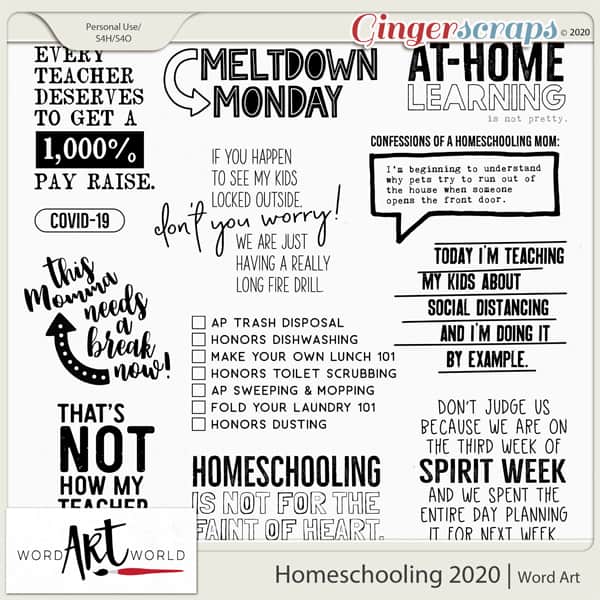 Personal Use/
S4H/S4O
Gingerscraps © 2020
EVERY
TEACHER
DESERVES
TO GET A
1,000%
PAY RAISE.
MELTDOWN
MONDAY
AT-HOME
LEARNING
is not pretty.
CONFESSIONS OF A HOMESCHOOLING MOM:
I'm beginning to understand
why pets try to run out of
the house when someone
opens the front door.
IF YOU HAPPEN
TO SEE MY KIDS
LOCKED OUTSIDE,
don't you worry!
WE ARE JUST
HAVING A REALLY
LONG FIRE DRILL.
COVID-19
this
Momma
needs
a
break
now!
TODAY I'M TEACHING
MY KIDS ABOUT
SOCIAL DISTANCING
AND I'M DOING IT
BY EXAMPLE.
AP TRASH DISPOSAL
HONORS DISHWASHING
MAKE YOUR OWN LUNCH 101
HONORS TOILET SCRUBBING
AP SWEEPING & MOPPING
FOLD YOUR LAUNDRY 101
HONORS DUSTING
THAT'S
NOT
HOW MY
TEACHER
HOMESCHOOLING
IS NOT FOR THE
FAINT OF HEART.
DON'T JUDGE US
BECAUSE WE ARE ON
THE THIRD WEEK OF
SPIRIT WEEK
AND WE SPENT THE
ENTIRE DAY PLANNING
IT FOR NEXT WEEK
WORD ART WORLD
Homeschooling 2020 | Word Art